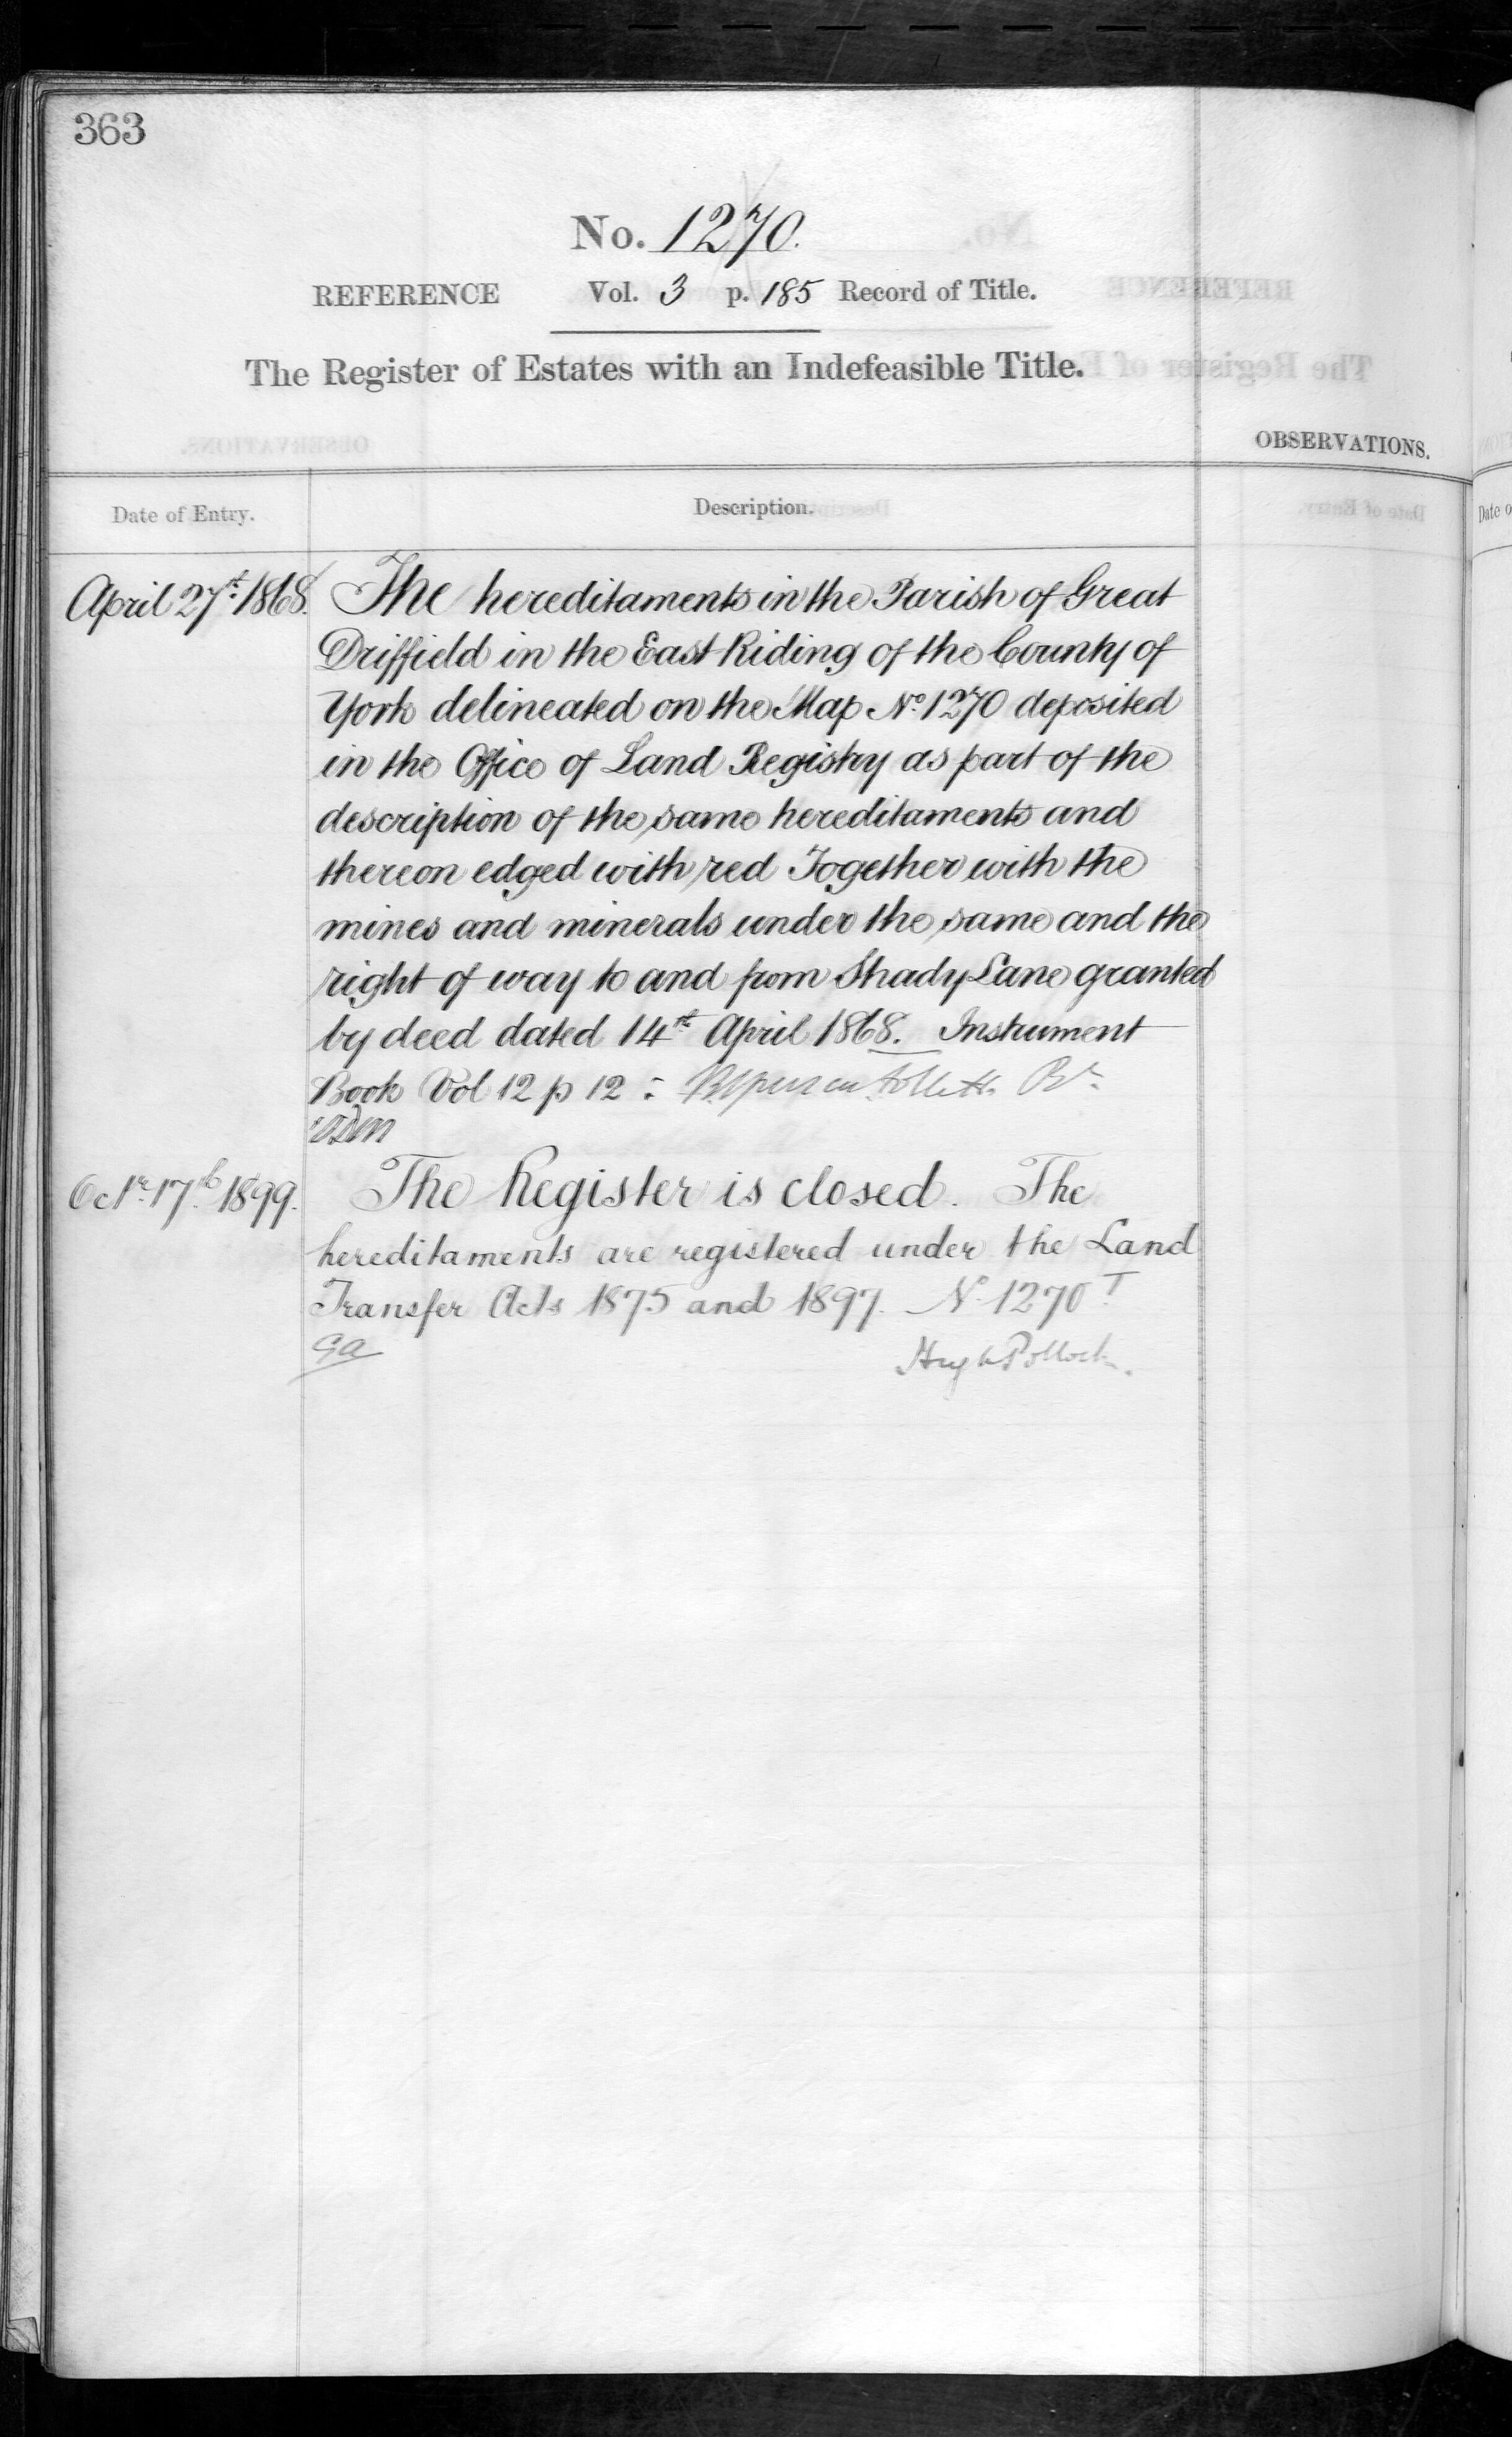 363
No. 1270.
REFERENCE Vol. 3 p. 185 Record of Title.
The Register of Estates with an Indefeasible Title.
OBSERVATIONS.
Date of Entry. Description.
April 27th 1868. The hereditaments in the Parish of Great
Driffield in the East Riding of the County of
York delineated on the Map No. 1270 deposited
in the Office of Land Registry as part of the
description of the same hereditaments and
thereon edged with red Together with the
mines and minerals under the same and the
right of way to and from Shady Lane granted
by deed dated 14th April 1868. Instrument
Book Vol 12 p 12 : Follett Rr.
Octr. 17th 1899. The Register is closed. The
hereditaments are registered under the Land
Transfer Acts 1875 and 1897. No. 1270 T
GA Hugh Pollock.
Date o